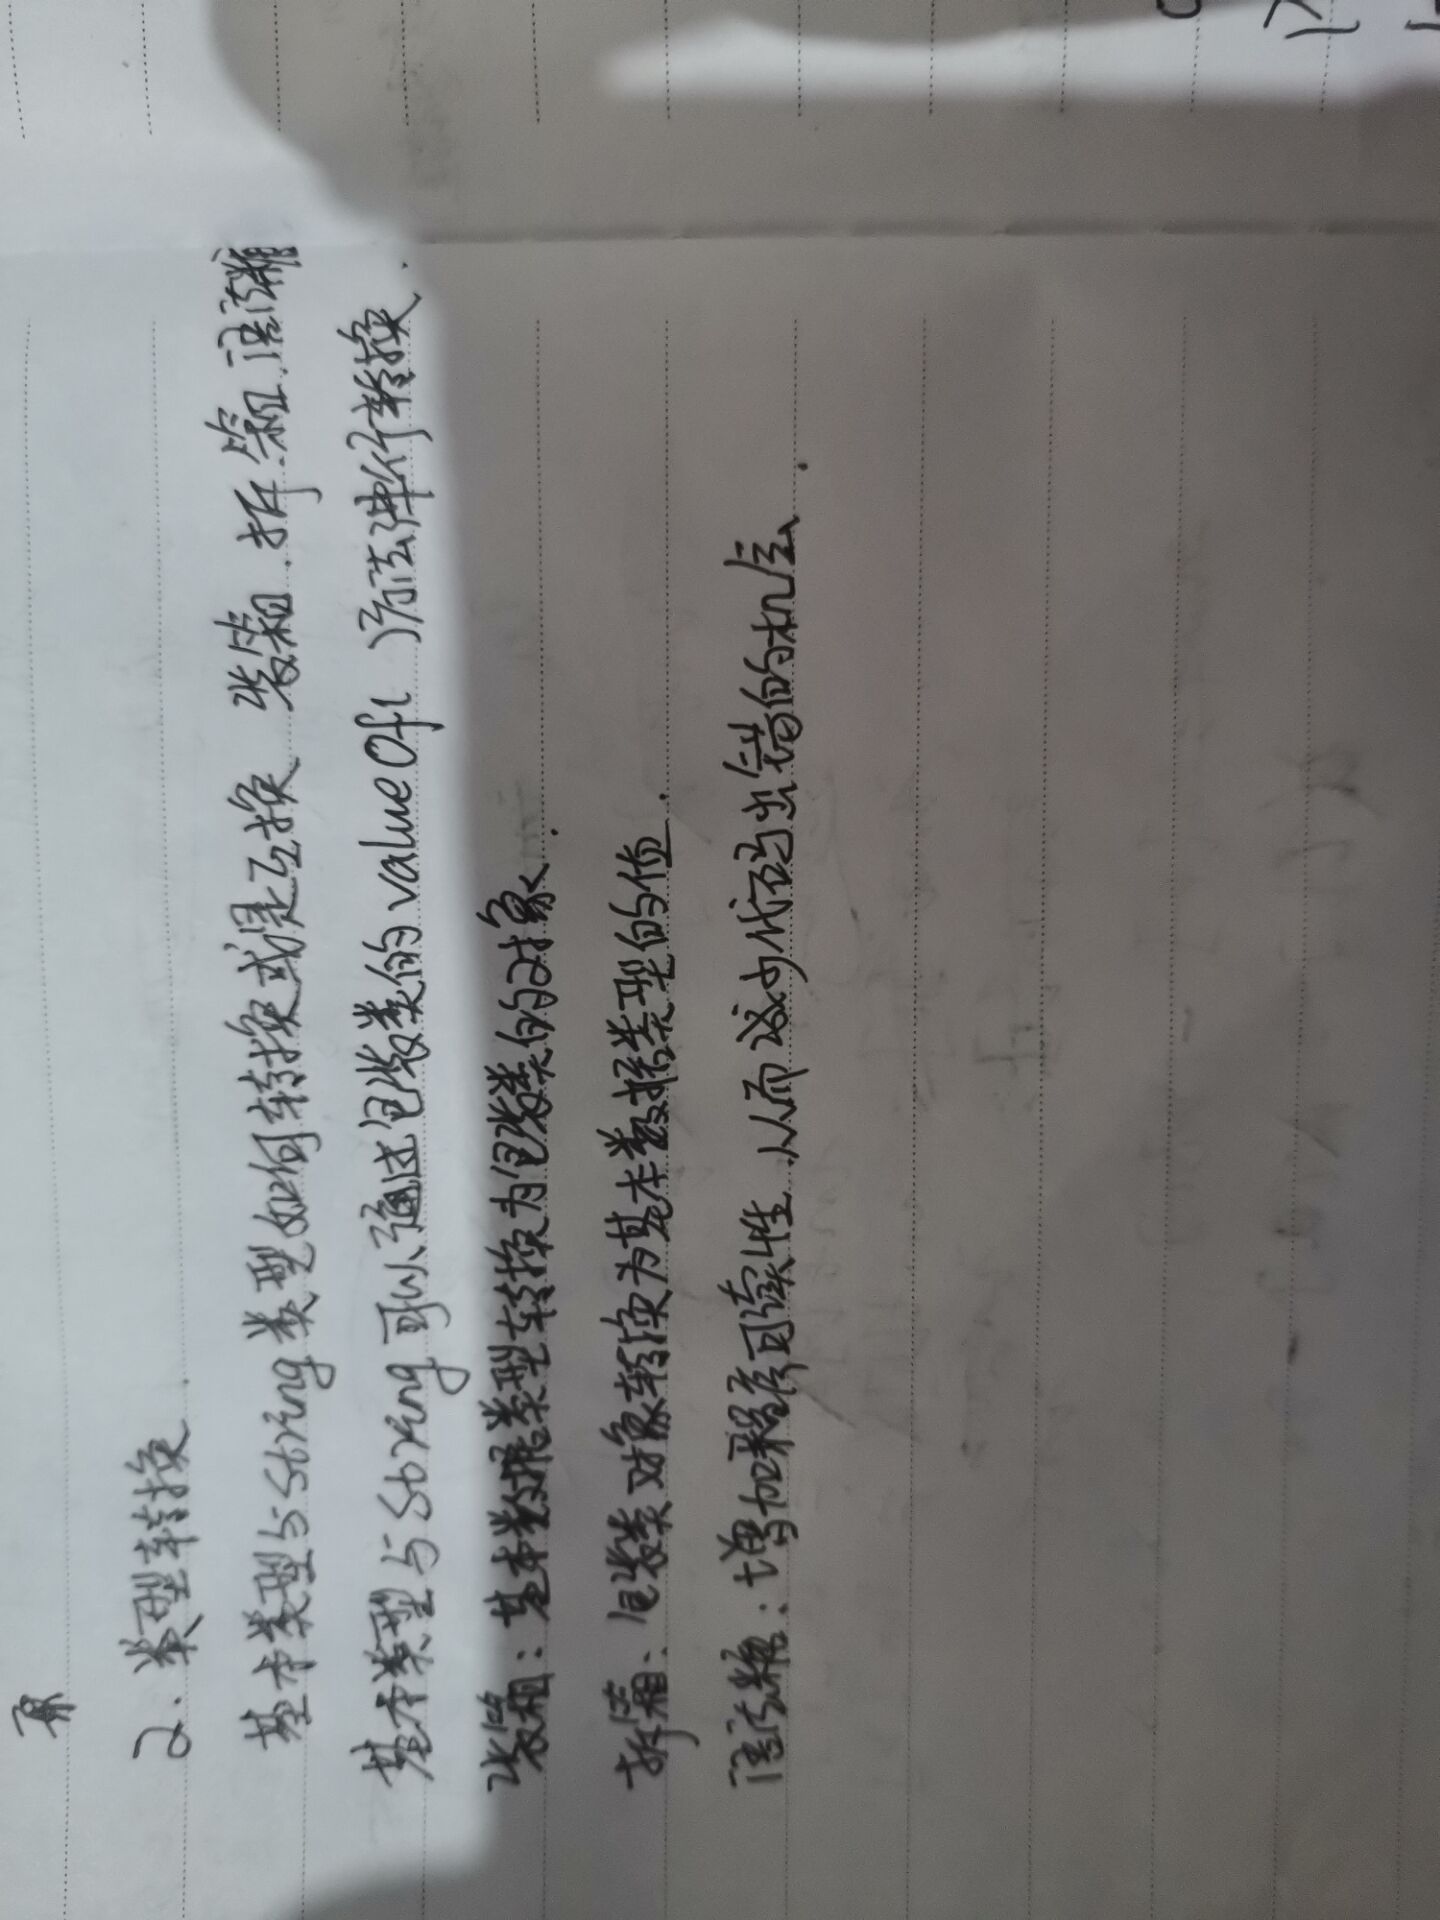 2. 类型转换
基本类型与String类型如何转换或是互换 装箱.拆箱.语法糖
基本类型与String 可以通过包装类的valueOf()方法进行转换.
装箱：基本数据类型转换为包装类的对象.
拆箱：包装类对象转换为基本数据类型的值.
语法糖：增加程序可读性.从而减少代码出错的机会.